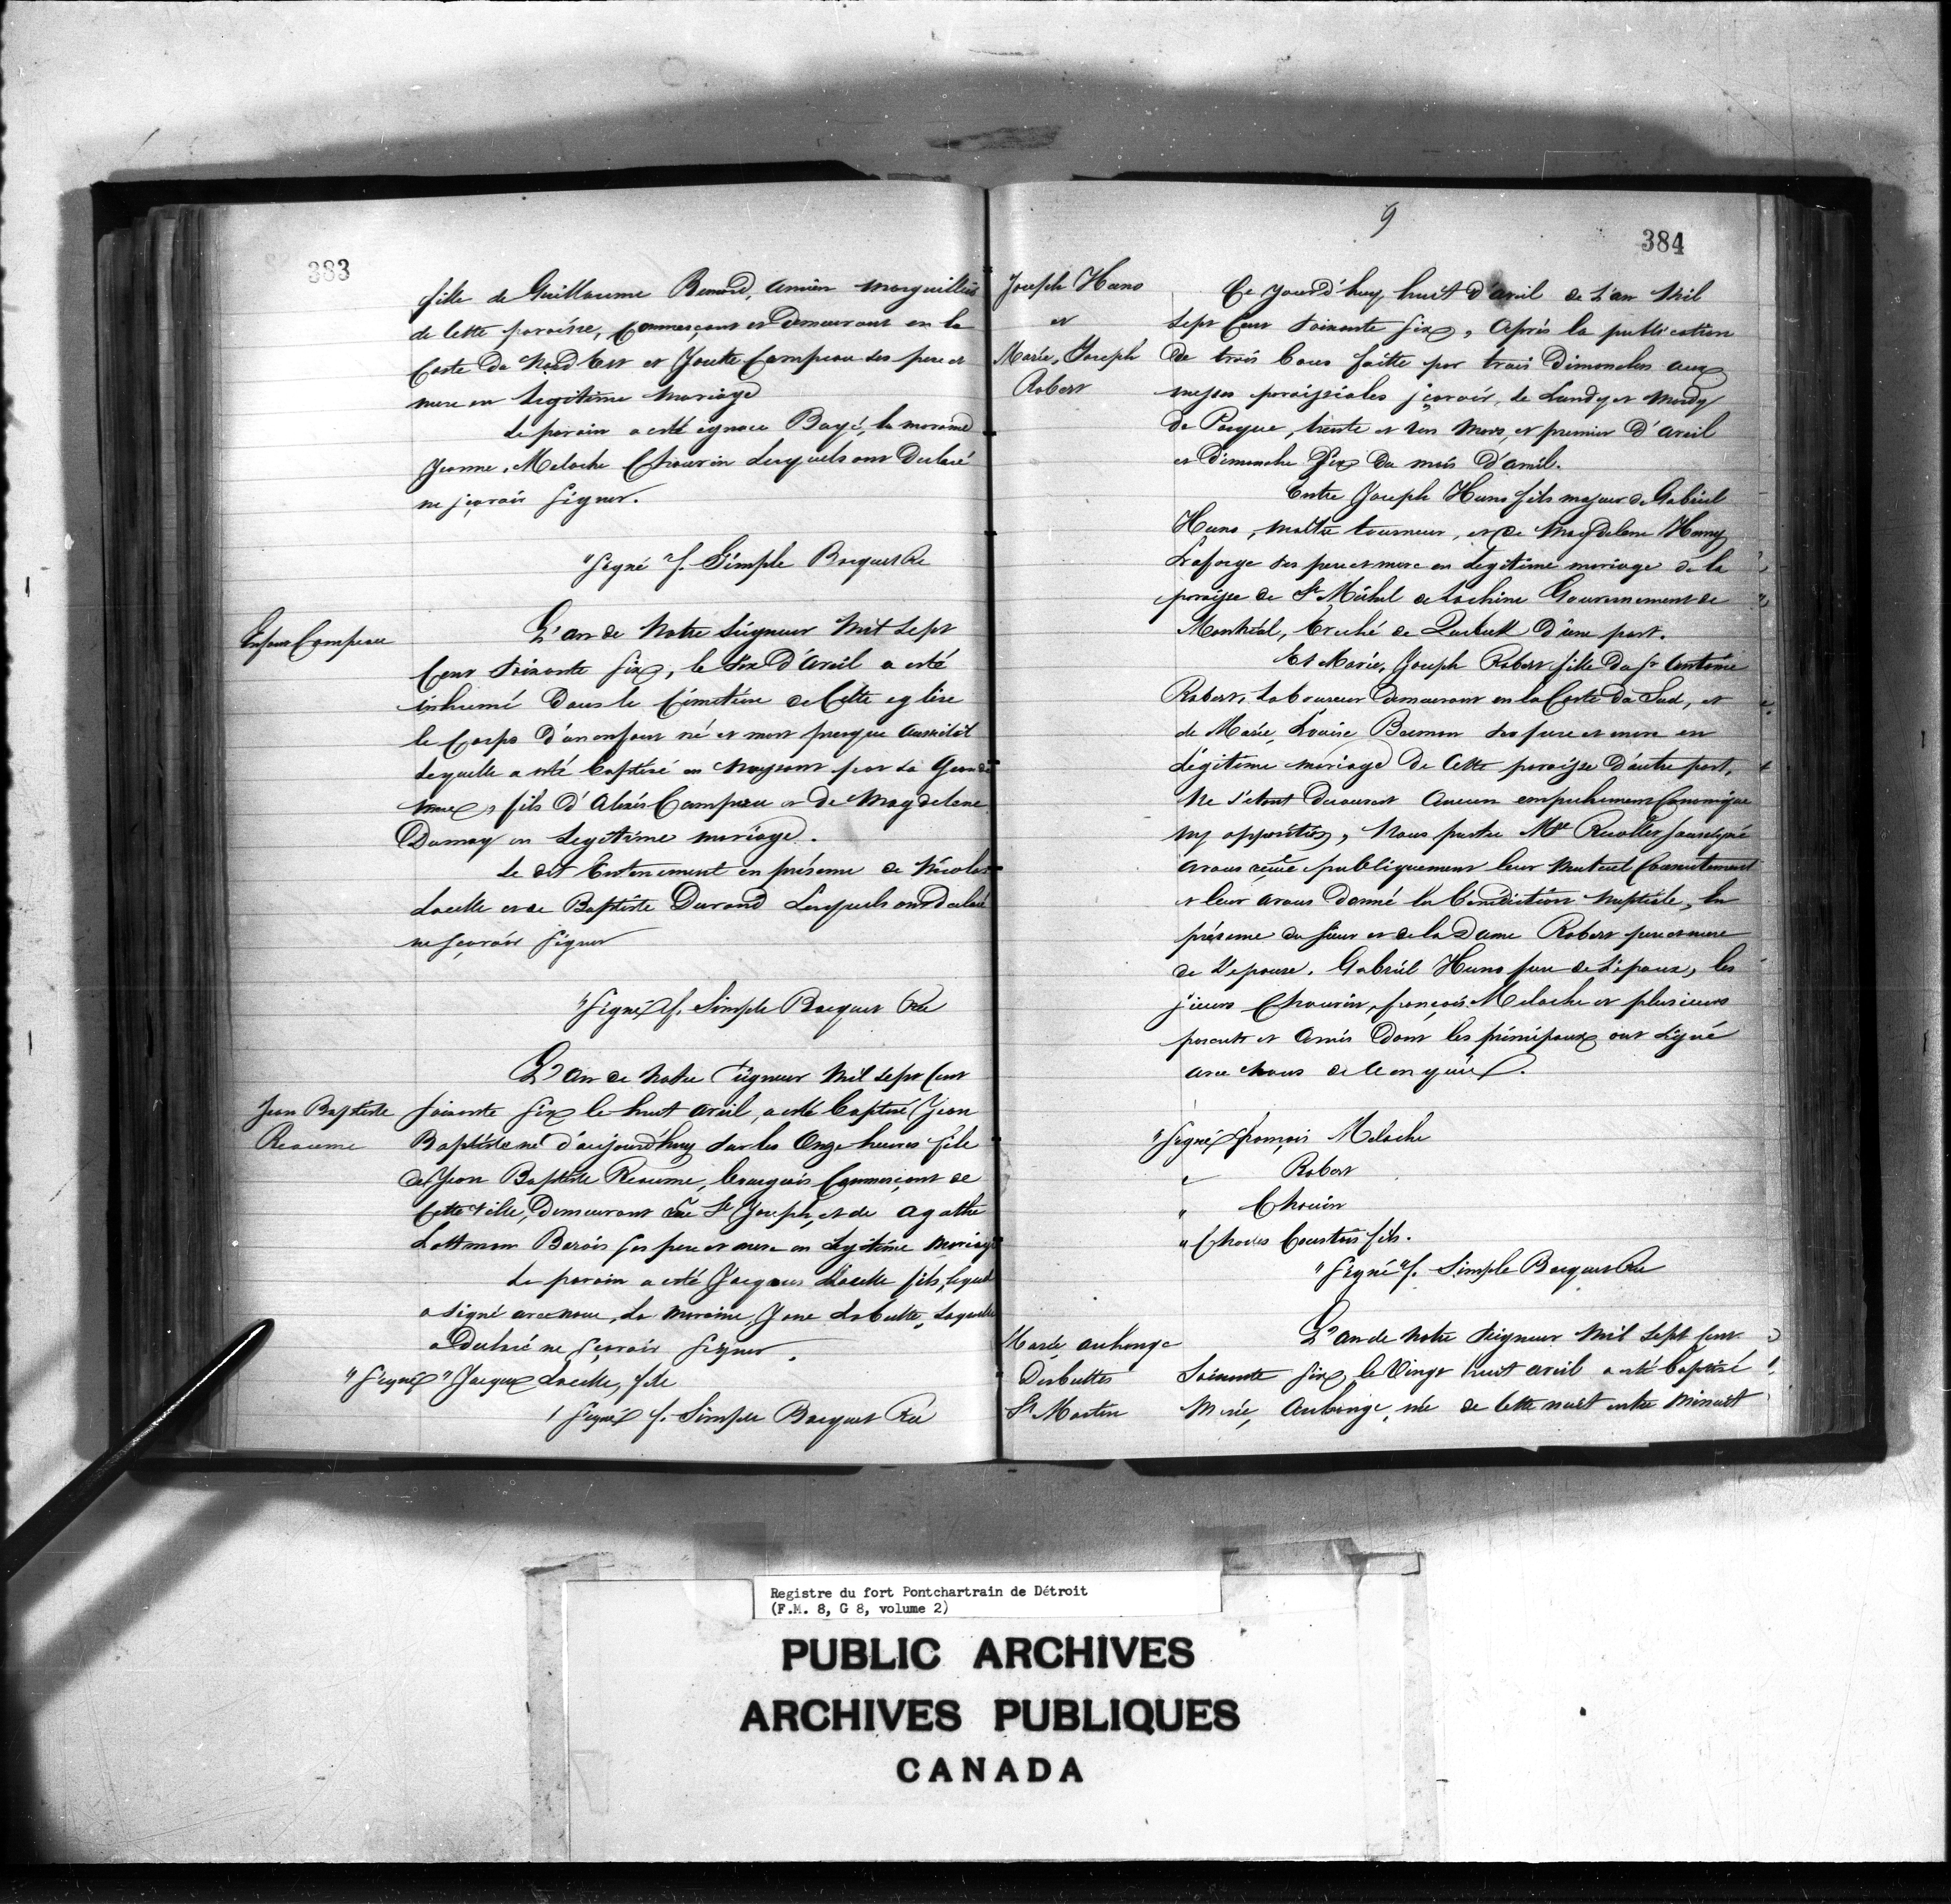 383
fille de Guillaume Bernard, ancien Marguillier
de Cette paroisse, Commerçant et Demeurant en la
Coste du Nord Est et Campeau ses pere et
mere en Legitime Mariage
Le parain a esté ignace Bayé, la maraine
Jeanne, Meloche Chauvin Lesquels ont Declaré
ne sçavoir signer.
"Signé" f. Simple Bocquet
Enfant Campeau
L'an de Notre Seigneur Mil Sept
Cent Soixante six, le Six d'Avril a esté
inhumé Dans le Cimetiere de Cette eglise
le Corps d'un enfant né et mort presque Aussitôt
Lequelle a esté baptisé en Naissant par sa Grande
mere, fils d'Alexis Campeau et de Magdelene
en Legitime mariage.
Le dit Enterrement en présence de Nicolas
Lacelle et de Baptiste Durand Lesquels ont declaré
ne sçavoir signer
"Signé" f. Simple Bocquet
L'an de Notre Seigneur Mil Sept Cent
Jean Baptiste
Reaume
soixante six le huit avril, a esté baptisé Jean
Baptiste né d'aujourd'huy sur les Onze heures fils
de Jean Baptiste Reaume, bourgeois Commerçant de
Cette Ville, Demeurant rue St Joseph, et de Agathe
Lootman Barois ses pere et mere en Legitime Mariage
Le parain a esté Jacques Lacelle fils, lequel
a signé avec nous, La maraine, Labutte, Laquelle
a Declaré ne sçavoir signer.
"Signé" Jacques Lacelle, fils
"Signé" f. Simple Bocquet
9
384
Joseph Huno
et
Marie, Joseph
Robert
Ce jourd'huy huit d'avril de L'an Mil
Sept Cent Soixante Six, Après la publication
de trois bans faitte par trois Dimanches aux
messes paroissiales sçavoir, le Lundy et Mardy
de Pasque, trente et un Mars, et premier d'Avril
et Dimanche Six du mois d'avril.
Entre Joseph Huno fils majeur de Gabriel
Huno, maître tourneur, et de Magdelene
Laforge ses pere et mere en Légitime mariage de la
paroisse de St Michel de Lachine Gouvernement de
Montréal, Evéché de d'une part.
Et Marie, Joseph Robert fille du Sr Antoine
Robert, Laboureur Demeurant en la Coste du Sud, et
de Marie, Louise Becmon ses pere et mere en
Légitime mariage de Cette paroisse d'autre part,
Ne s'étant Decouvert Aucun empechement Canonique
ny opposition, Nous pretre Mre Recollet soussigné
avons reçue publiquement leur Mutuel Consentement
et leur avons donné la bénédiction Nuptiale, En
présence du sieur et de la Dame Robert pere et mere
de L'epouse. Gabriel Huno pere de L'époux, les
sieurs Chauvin, françois Meloche et plusieurs
parents et Amis dont les principaux ont signé
avec Nous de ce enquis.
"Signé" françois Meloche
" Robert
" Chauvin
" Charles Courtois fils.
"Signé" f. Simple Bocquet
Marie archange
Desbuttes
St Martin
L'an de Notre Seigneur Mil Sept Cent
Soixante six, le Vingt huit avril a esté baptisé
Marie, Archange, née de Cette nuit entre Minuit
Registre du fort Pontchartrain de Détroit
(F.M. 8, G 8, volume 2)
PUBLIC ARCHIVES
ARCHIVES PUBLIQUES
CANADA